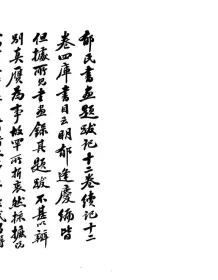 郁氏書畫題跋記十二卷續記十二
卷四庫書目云明郁逢慶編皆
但據所見書畫錄其題跋不甚以辨
別真贋為事故罕所折衷然採摭